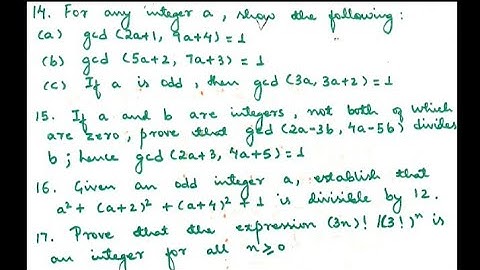 14. For any integer a, show the following:
(a) gcd (2a+1, 9a+4) = 1
(b) gcd (5a+2, 7a+3) = 1
(c) If a is odd, then gcd (3a, 3a+2) = 1
15. If a and b are integers, not both of which
are zero, prove that gcd (2a-3b, 4a-5b) divides
b; hence gcd (2a+3, 4a+5) = 1
16. Given an odd integer a, establish that
a² + (a+2)² + (a+4)² + 1 is divisible by 12.
17. Prove that the expression (3n)! / (3!)ⁿ is
an integer for all n ≥ 0